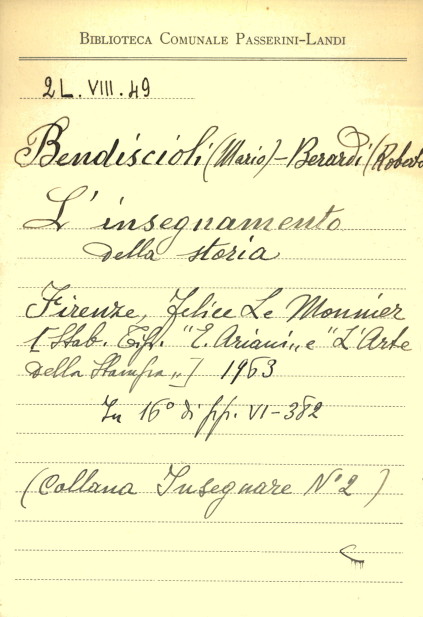 BIBLIOTECA COMUNALE PASSERINI-LANDI
2L. VIII. 49
Bendiscioli (Mario) - Berardi (Roberto
L'insegnamento
della storia
Firenze, Felice Le Monnier
[Stab. Tip. "E. Ariani" e "L'Arte
della Stampa"] 1963
In 16° di pp. VI-382
(Collana Insegnare N° 2)